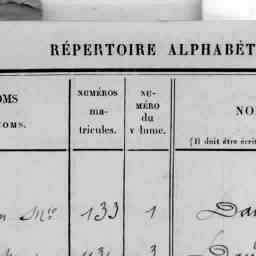 RÉPERTOIRE ALPHABÉT
OMS
OMS.
NUMÉROS
ma-
tricules.
NU-
MÉRO
du
v lume.
NO
(Il doit être écri
133 1 Da
3